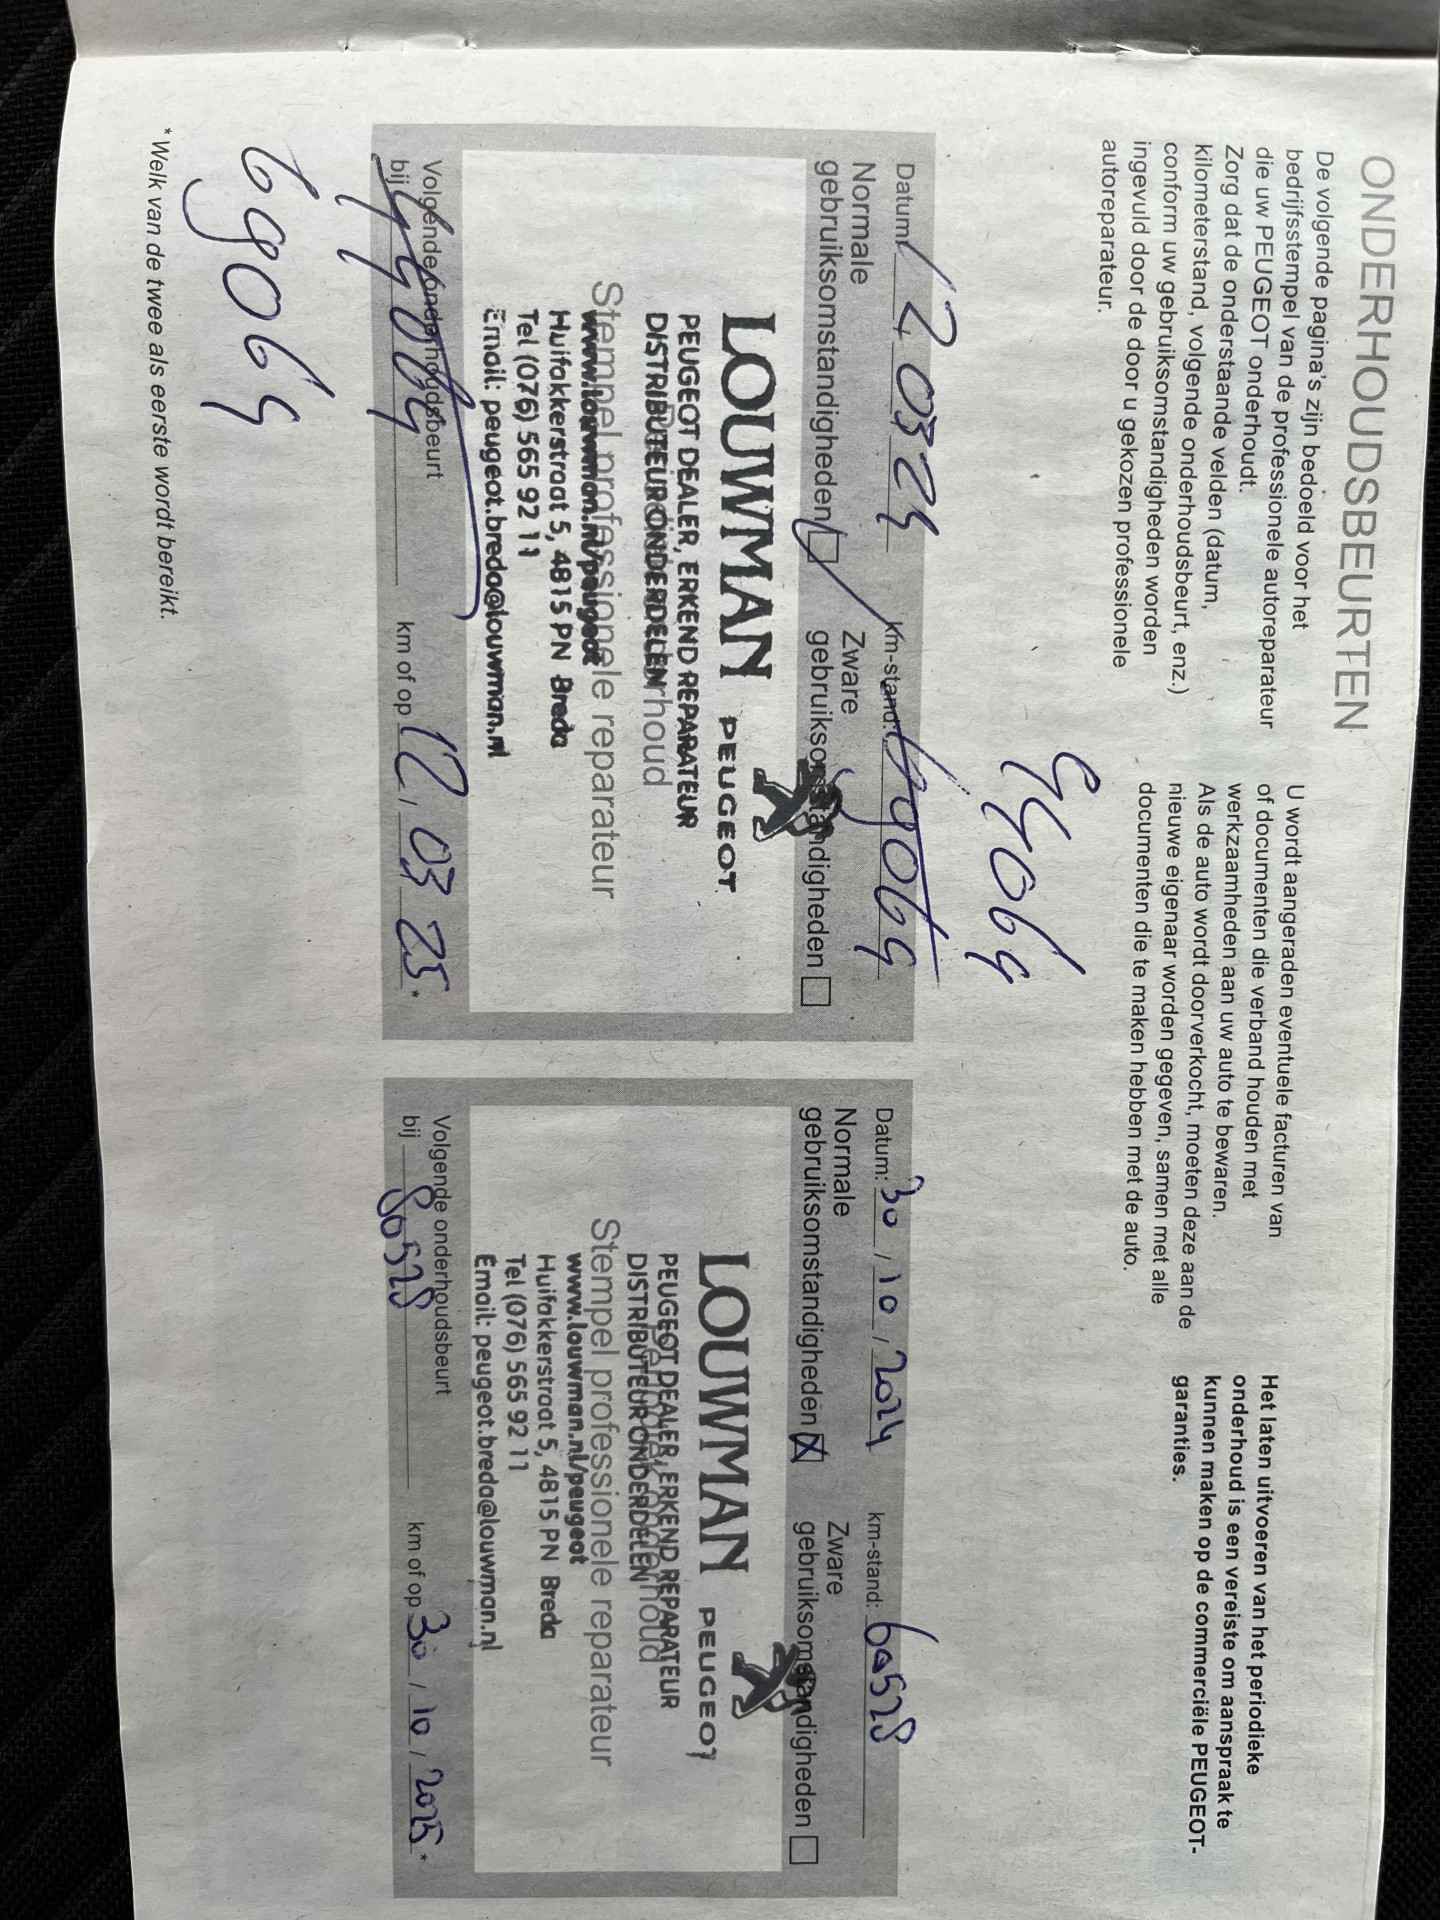 ONDERHOUDSBEURTEN
De volgende pagina's zijn bedoeld voor het
bedrijfsstempel van de professionele autoreparateur
die uw PEUGEOT onderhoudt.
Zorg dat de onderstaande velden (datum,
kilometerstand, volgende onderhoudsbeurt, enz.)
conform uw gebruiksomstandigheden worden
ingevuld door de door u gekozen professionele
autoreparateur.
U wordt aangeraden eventuele facturen van
of documenten die verband houden met
werkzaamheden aan uw auto te bewaren.
Als de auto wordt doorverkocht, moeten deze aan de
nieuwe eigenaar worden gegeven, samen met alle
documenten die te maken hebben met de auto.
Het laten uitvoeren van het periodieke
onderhoud is een vereiste om aanspraak te
kunnen maken op de commerciële PEUGEOT-
garanties.
Datum: 12 03 24 km-stand:
Normale
gebruiksomstandigheden
Zware
gebruiksomstandigheden
LOUWMAN PEUGEOT
PEUGEOT DEALER, ERKEND REPARATEUR
DISTRIBUTEUR ONDERDELEN
Stempel professionele reparateur
www.louwman.nl/peugeot
Huifakkerstraat 5, 4815 PN Breda
Tel (076) 565 92 11
Email: peugeot.breda@louwman.nl
Volgende onderhoudsbeurt
bij km of op 12, 03 25*
69069
* Welk van de twee als eerste wordt bereikt.
Datum: 30 / 10 / 2024 km-stand: 60528
Normale
gebruiksomstandigheden
Zware
gebruiksomstandigheden
LOUWMAN PEUGEOT
PEUGEOT DEALER, ERKEND REPARATEUR
DISTRIBUTEUR ONDERDELEN
Stempel professionele reparateur
www.louwman.nl/peugeot
Huifakkerstraat 5, 4815 PN Breda
Tel (076) 565 92 11
Email: peugeot.breda@louwman.nl
Volgende onderhoudsbeurt
bij 80528 km of op 30 / 10 / 2025*